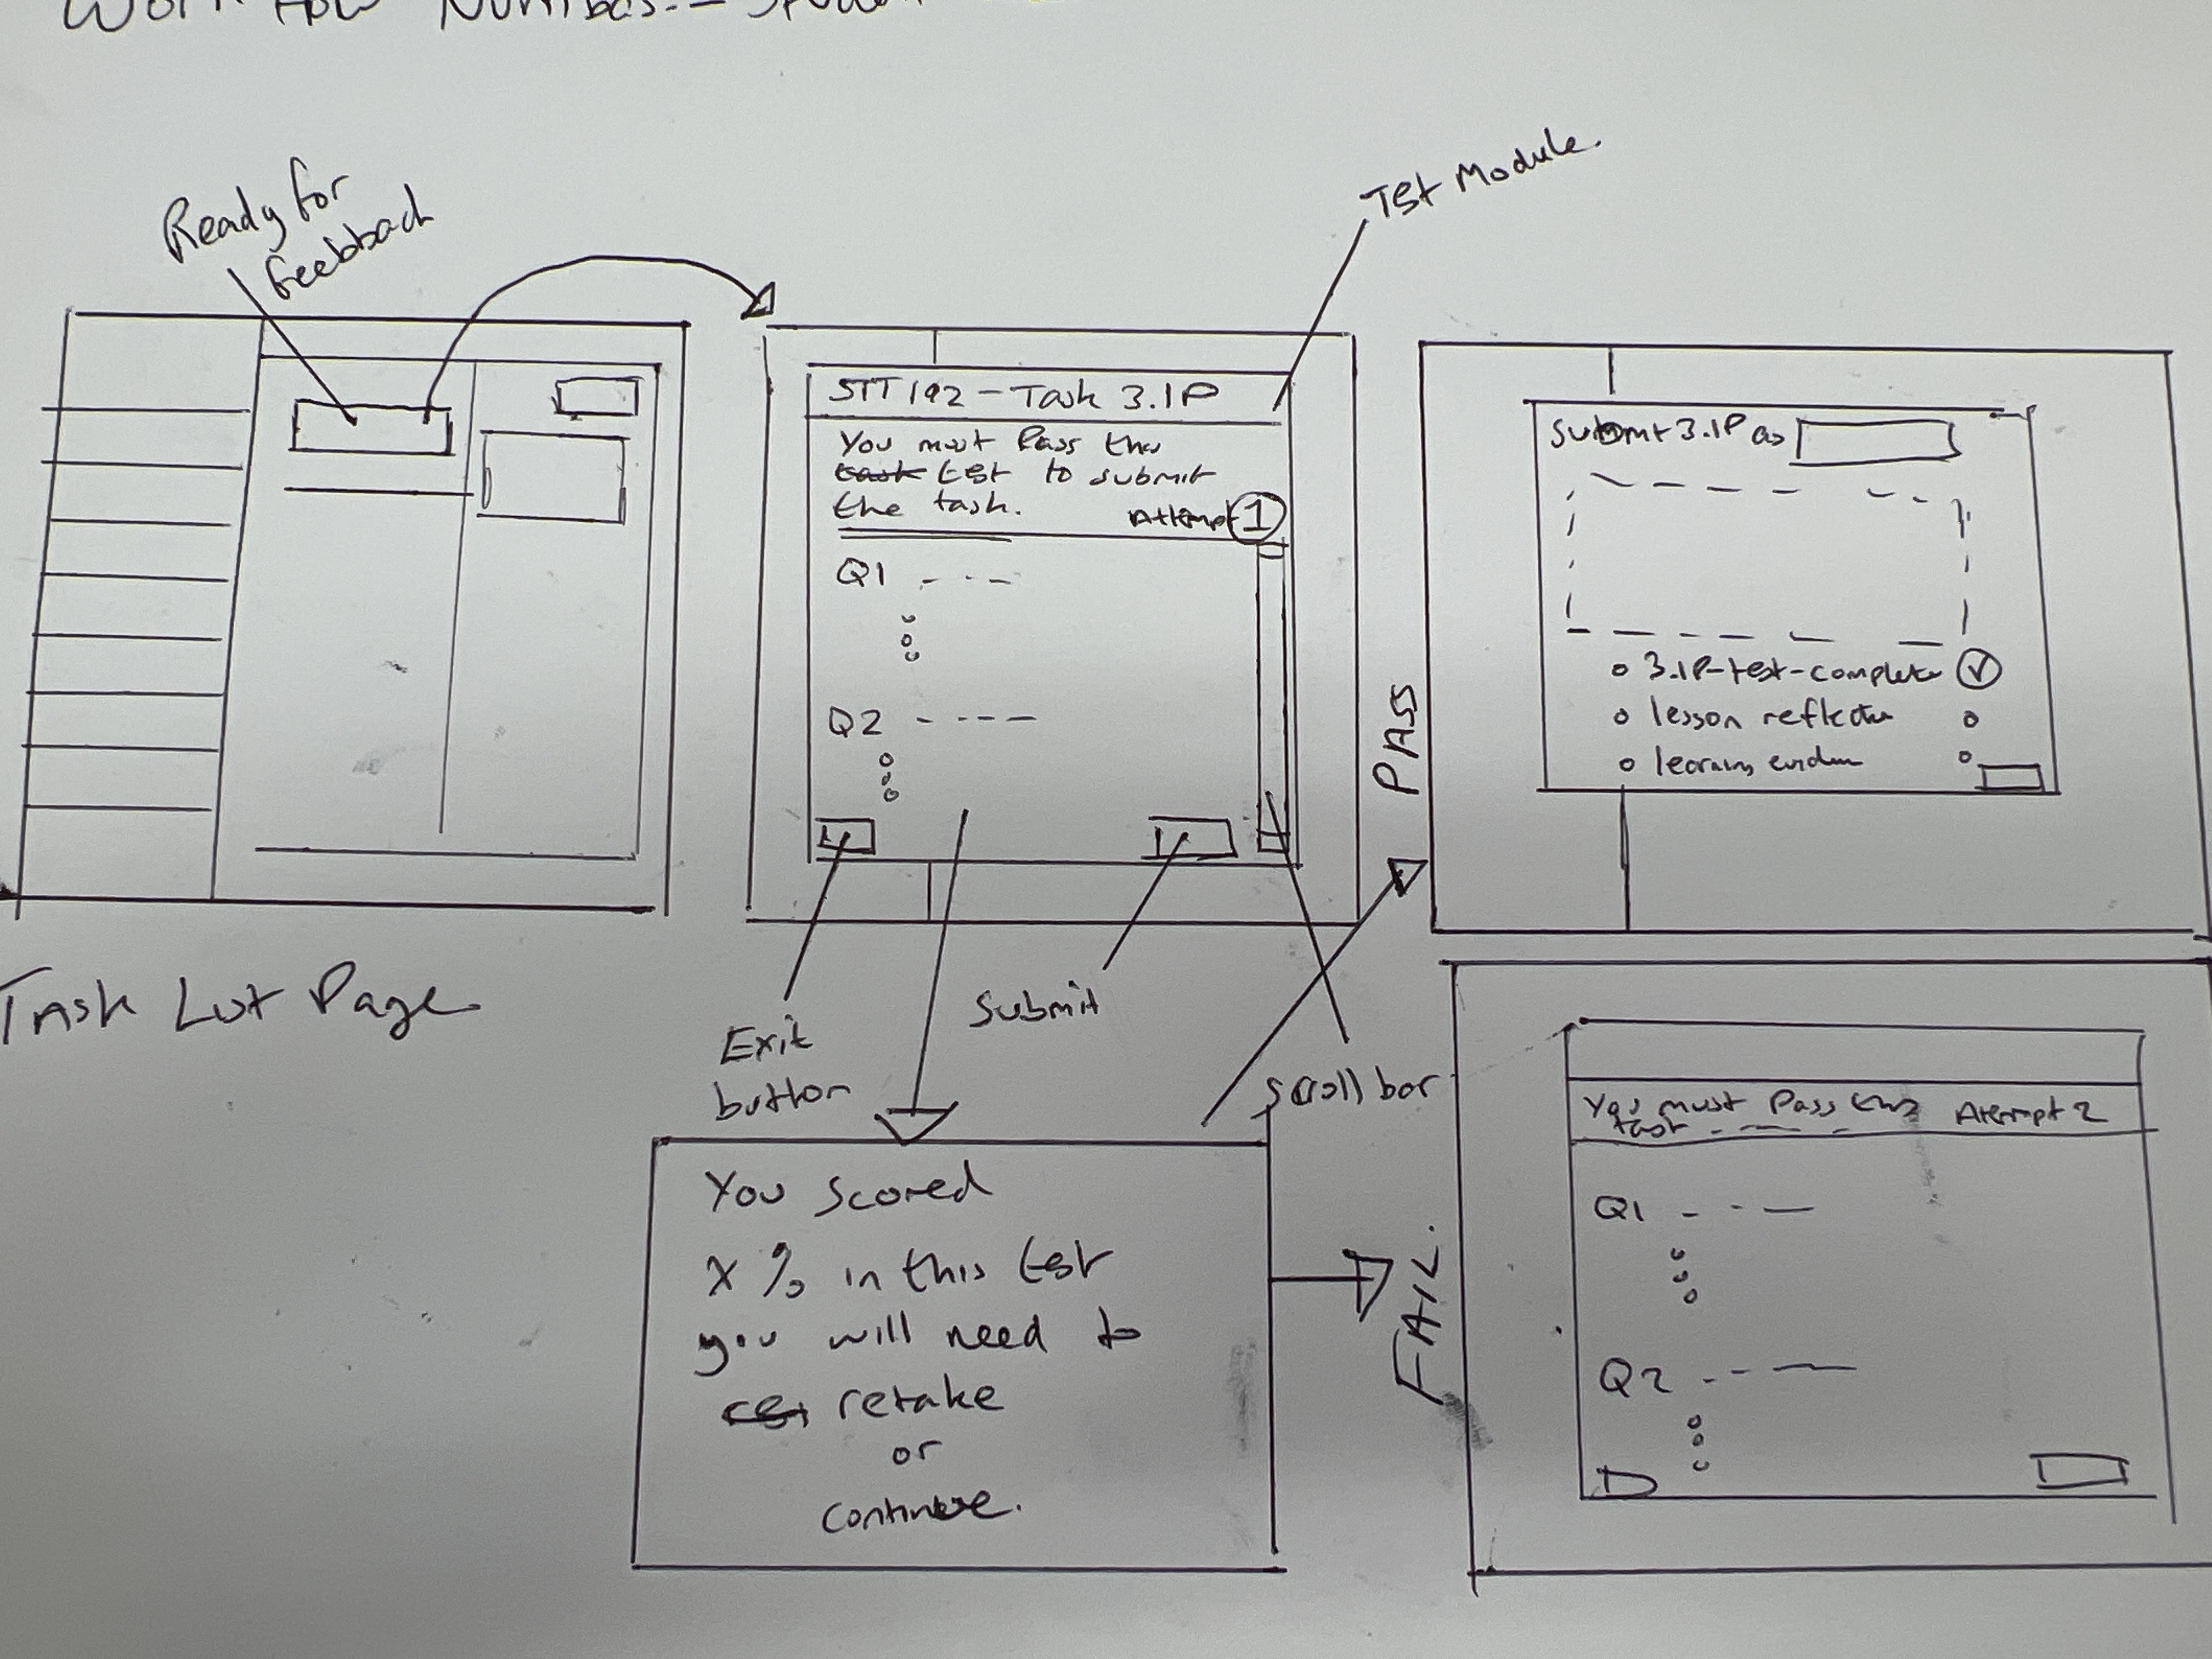 Work Flow Numbas:-
Ready for
feedback
Test Module.
STT192 - Task 3.1P
You must Pass this
task test to submit
the task.
Attempt 1
Q1
Q2
Exit
button
Submit
Scroll bar
Task List Page
PASS
Submit 3.1P as
3.1P-test-complete
lesson reflection
learning eviden
You scored
X % in this test
you will need to
retake
or
continue.
FAIL.
You must Pass this Attempt 2
Q1
Q2